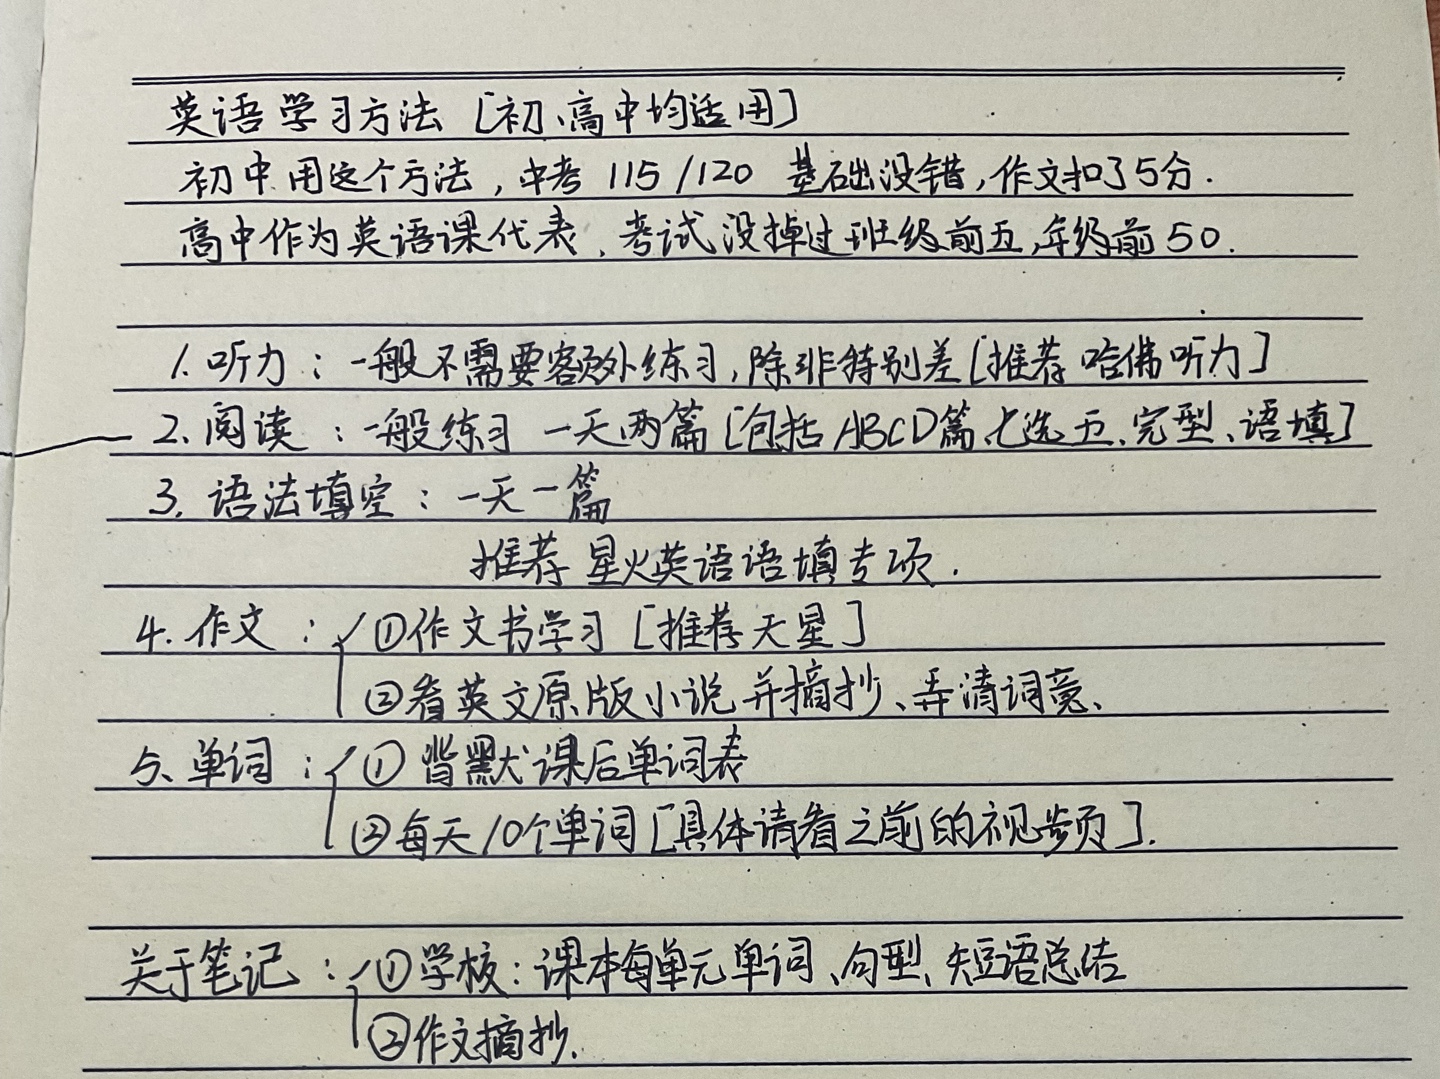 英语学习方法 [初、高中均适用]
初中用这个方法，中考 115/120 基础没错，作文扣了5分.
高中作为英语课代表、考试没掉过班级前五，年级前50.
1. 听力：一般不需要额外练习，除非特别差[推荐 哈佛听力]
2. 阅读：一般练习 一天两篇[包括ABCD篇、七选五、完型、语填]
3. 语法填空：一天一篇
推荐 星火英语语填专项.
4. 作文：①作文书学习 [推荐天星]
②看英文原版小说并摘抄、弄清词意、
5、单词：① 背默课后单词表
②每天10个单词[具体请看之前的视频].
关于笔记：①学校：课本每单元单词、句型、短语总结
②作文摘抄.